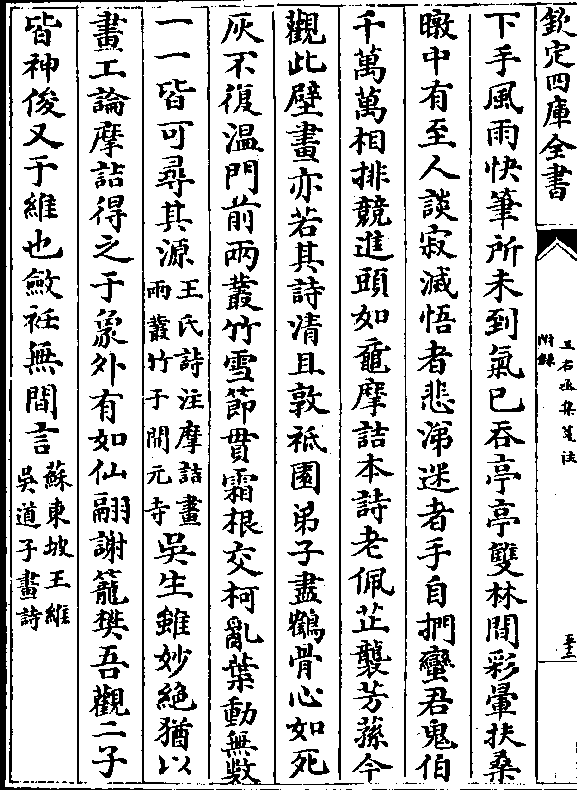 欽定四庫全書
王右丞集箋注
附錄
下手風雨快筆所未到氣已吞亭亭雙林間彩暈扶桑
暾中有至人談寂滅悟者悲涕迷者手自捫蠻君鬼伯
千萬萬相排競進頭如黿摩詰本詩老佩芷襲芳蓀今
觀此壁畫亦若其詩清且敦祗園弟子盡鶴骨心如死
灰不復溫門前兩叢竹雪節貫霜根交柯亂葉動無數
一一皆可尋其源王氏詩注摩詰畫兩叢竹于開元寺吳生雖妙絕猶以
畫工論摩詰得之于象外有如仙翮謝籠樊吾觀二子
皆神俊又于維也斂衽無間言蘇東坡王維吳道子畫詩